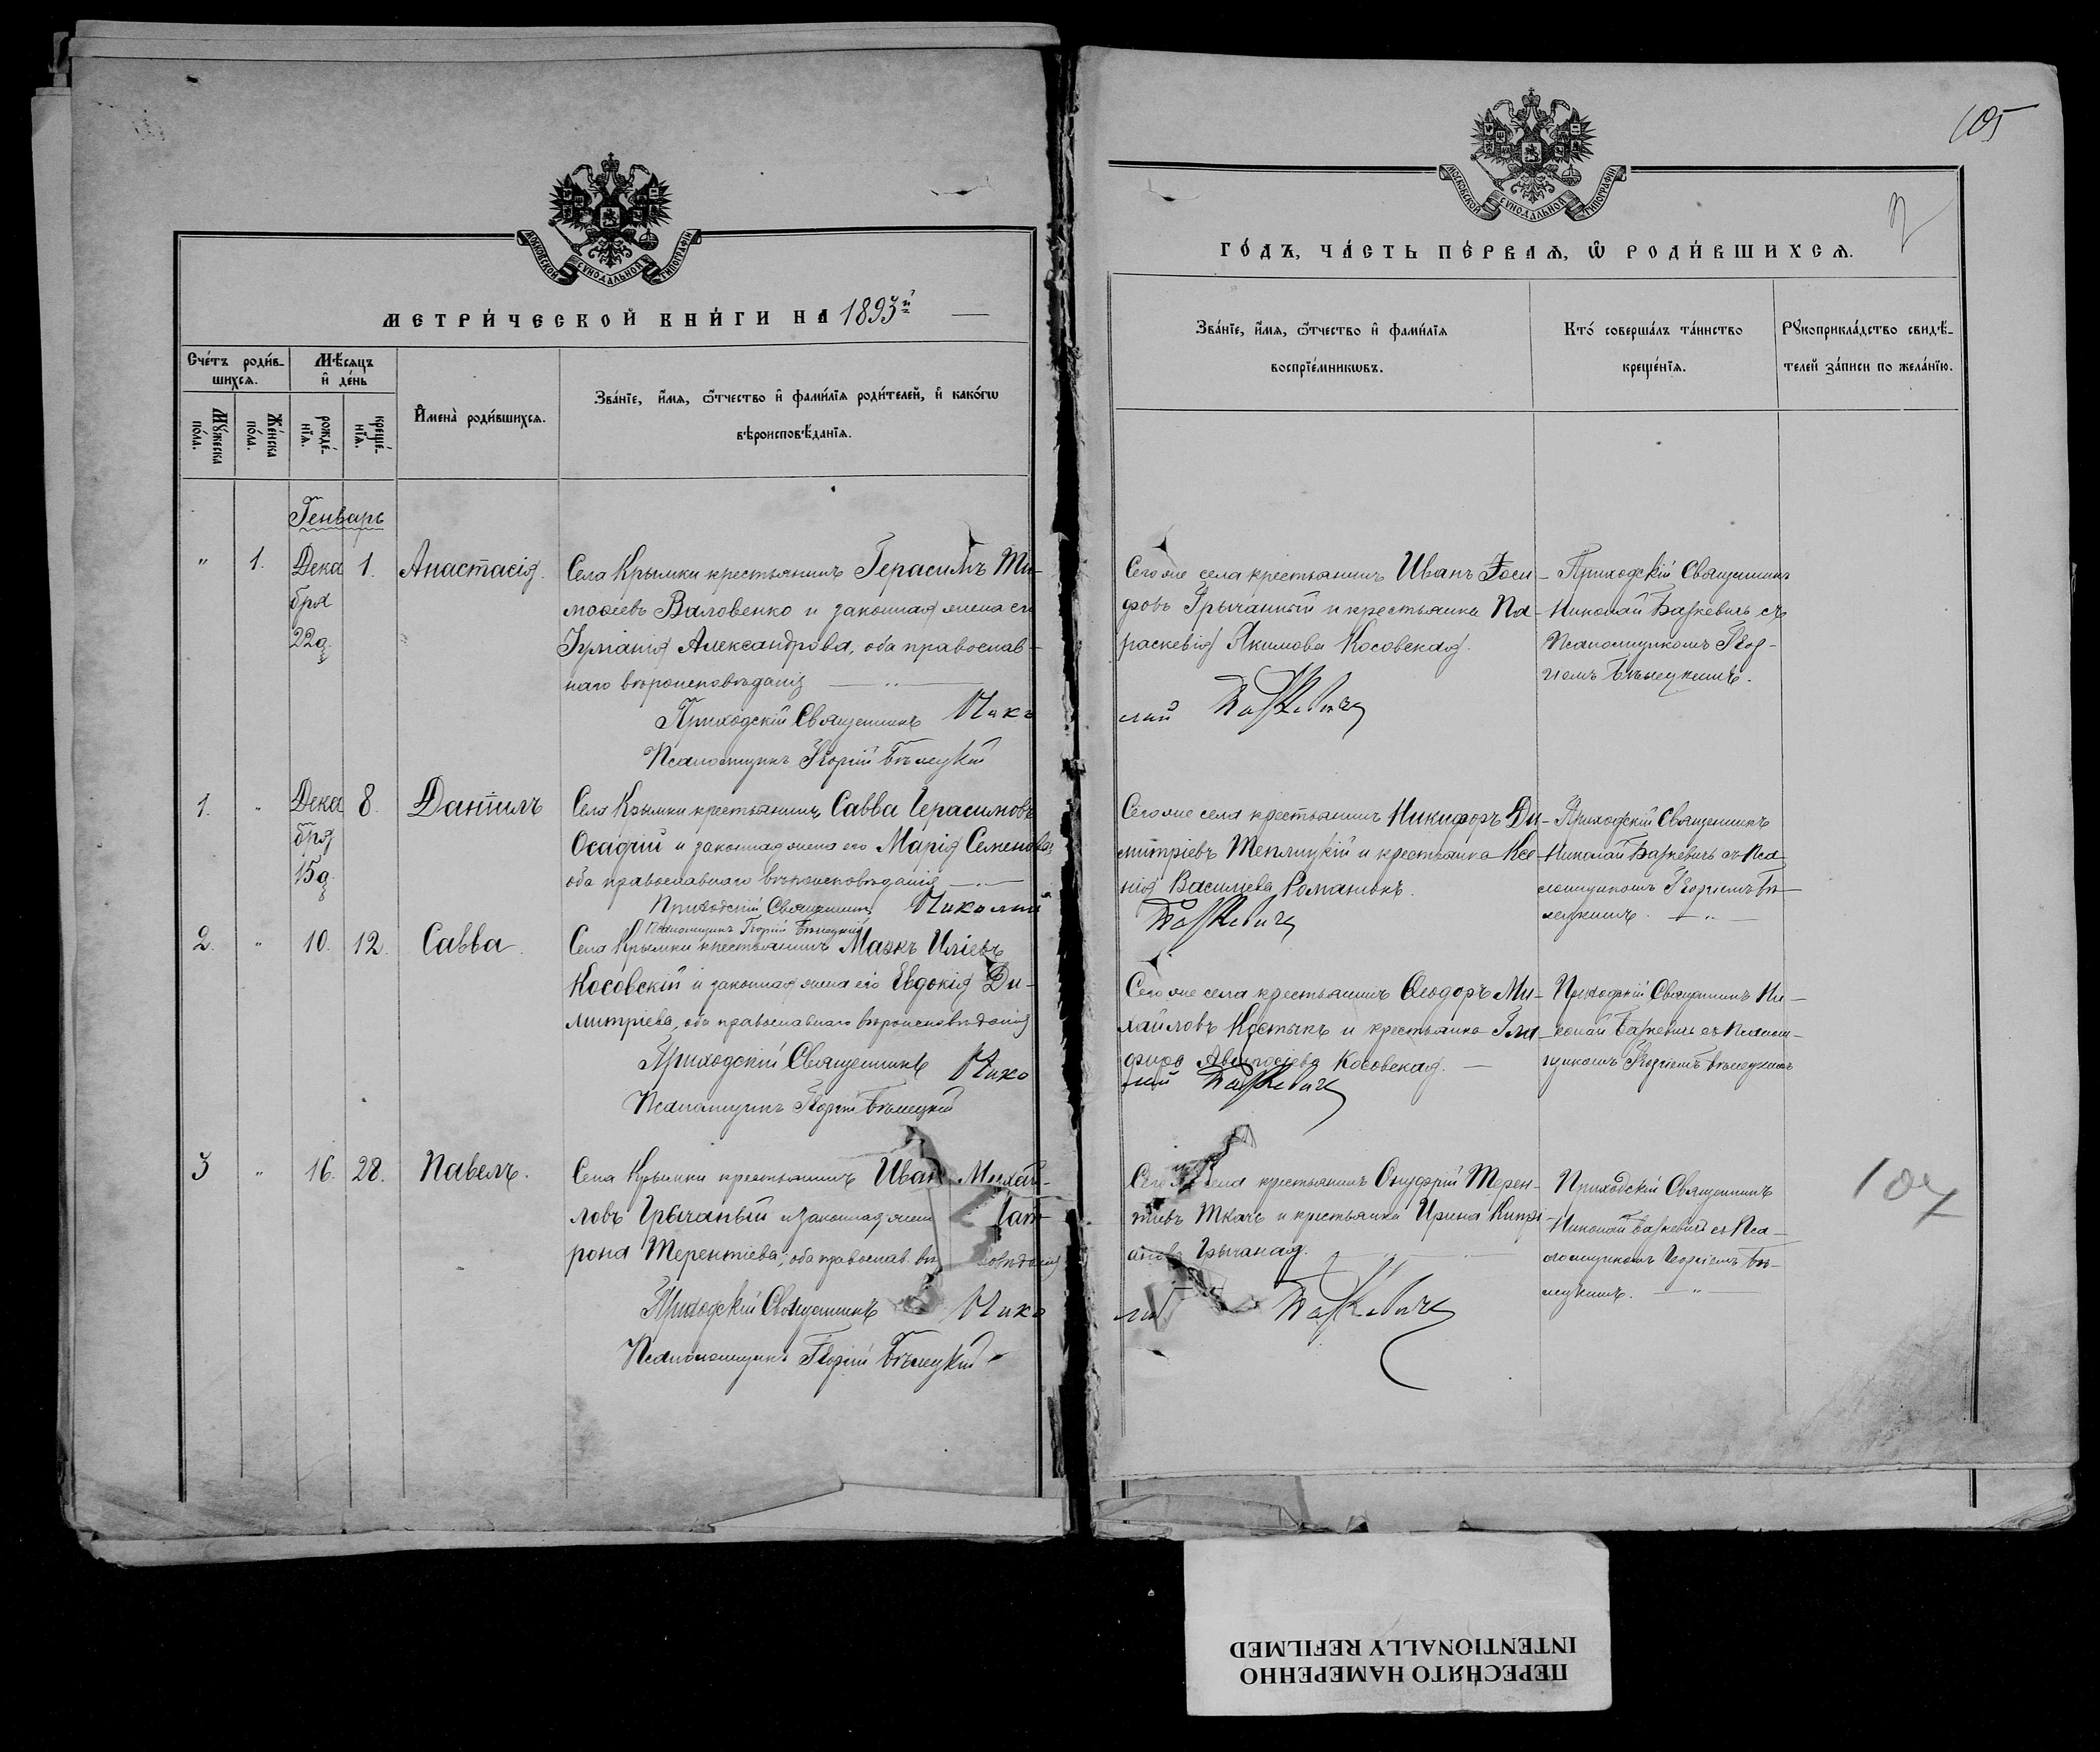 МОСКОВСКОЙ СУНОДАЛЬНОЙ ТИПОГРАФІИ
МЕТРИ́ЧЕСКОЙ КНИ́ГИ НА 1893й
Сче́тъ роди́вшихсѧ.
Мѣ́сѧцъ и҆ де́нь
Мꙋ́жеска по́ла.
Же́нска по́ла.
рожде́нїѧ.
креще́нїѧ.
И҆мена̀ роди́вшихсѧ.
Зва́нїе, и҆́мѧ, ѻ҆́тчество и҆ фами́лїѧ роди́телей, и҆ како́гѡ
вѣроисповѣ́данїѧ.
Генварь
" 1. Дека 1. Анастасія. Села Крымки крестьянинъ Герасимъ Ти-
бря моѳеевъ Валовенко и законная жена его
22д. Іуліанія Александрова, оба православ-
наго вѣроисповѣданія
Приходскій Священникъ Нико
Псаломщикъ Георгій Бѣлецкій
1. " Дека 8. Даніилъ Села Крымки крестьянинъ Савва Герасимовъ
бря Осадчій и законная жена его Марія Семенова,
15д. оба православнаго вѣроисповѣданія
Приходскій Священникъ Николай
Псаломщикъ Георгій Бѣлецкій
2. " 10. 12. Савва. Села Крымки крестьянинъ Маркъ Иліевъ
Косовскій и законная жена его Евдокія Ди-
митріева, оба православнаго вѣроисповѣданія
Приходскій Священникъ Нико
Псаломщикъ Георгій Бѣлецкій
3 " 16. 28. Павелъ. Села Крымки крестьянинъ Иван Михай-
ловъ Грычаный и законная жен
рона Терентіева, оба православ. вѣ овѣданія
Приходскій Священникъ Нико
Псаломщикъ Георгій Бѣлецкій
105
МОСКОВСКОЙ СУНОДАЛЬНОЙ ТИПОГРАФІИ
2
ГО́ДЪ, ЧА́СТЬ ПЕ́РВАѦ, Ѽ РОДИ́ВШИХСѦ.
Зва́нїе, и҆́мѧ, ѻ҆́тчество и҆ фами́лїѧ
воспрїе́мникѡвъ.
Кто̀ соверша́лъ та́инство
креще́нїѧ.
Рꙋкоприкла́дство свидѣ́-
телей за́писи по жела́нїю.
Сего же села крестьянинъ Иванъ Іоси-
фовъ Грычаный и крестьянка Па-
раскевія Якимова Косовская.
лай Базкевичъ
Приходскій Священникъ
Николай Базкевичъ съ
Псаломщикомъ Геор-
гіемъ Бѣлецкимъ.
Сего же села крестьянинъ Никифоръ Ди-
митріевъ Теплицкій и крестьянка Ксе-
нія Василіева Романюкъ.
Базкевичъ
Приходскій Священникъ
Николай Базкевичъ съ Пса-
ломщикомъ Георгіемъ Бѣ-
лецкимъ.
Сего же села крестьянинъ Ѳеодоръ Ми-
хайловъ Костыкъ и крестьянка Гли-
Косовская.
лай Базкевичъ
Приходскій Священникъ Ни-
колай Базкевичъ съ Псалом-
щикомъ Георгіемъ Бѣлецкимъ
Сего же села крестьянинъ Онуфрій Терен-
тіевъ Ткачъ и крестьянка Ирина Кипрі-
анова Грычаная.
лай Базкевичъ
Приходскій Священникъ
Николай Базкевичъ съ Пса-
ломщикомъ Георгіемъ Бѣ-
лецкимъ.
107
ПЕРЕСНЯТО НАМЕРЕННО
INTENTIONALLY REFILMED